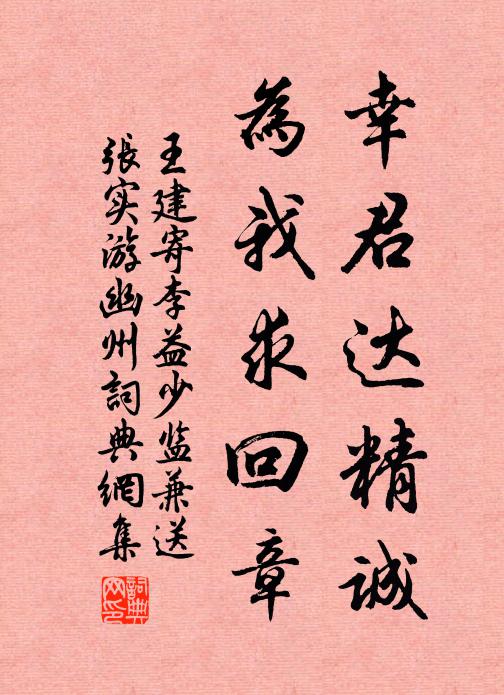 幸君达精诚
為我求回章
王建寄李益少监兼送
張实游幽州詞典網集
詞典网印